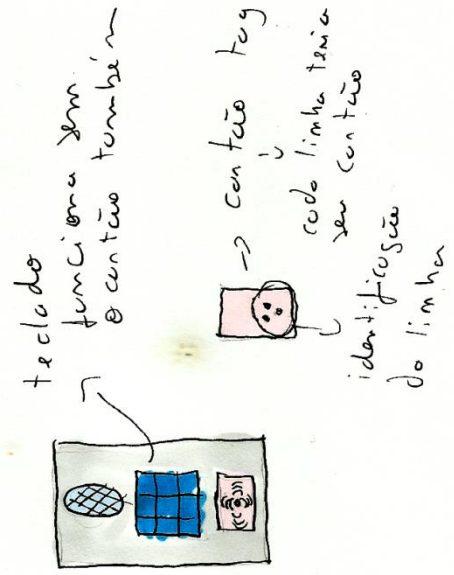 teclado
funciona sem
o cartão também
→ cartão tag
cada linha teria
seu cartão
identificação
da linha